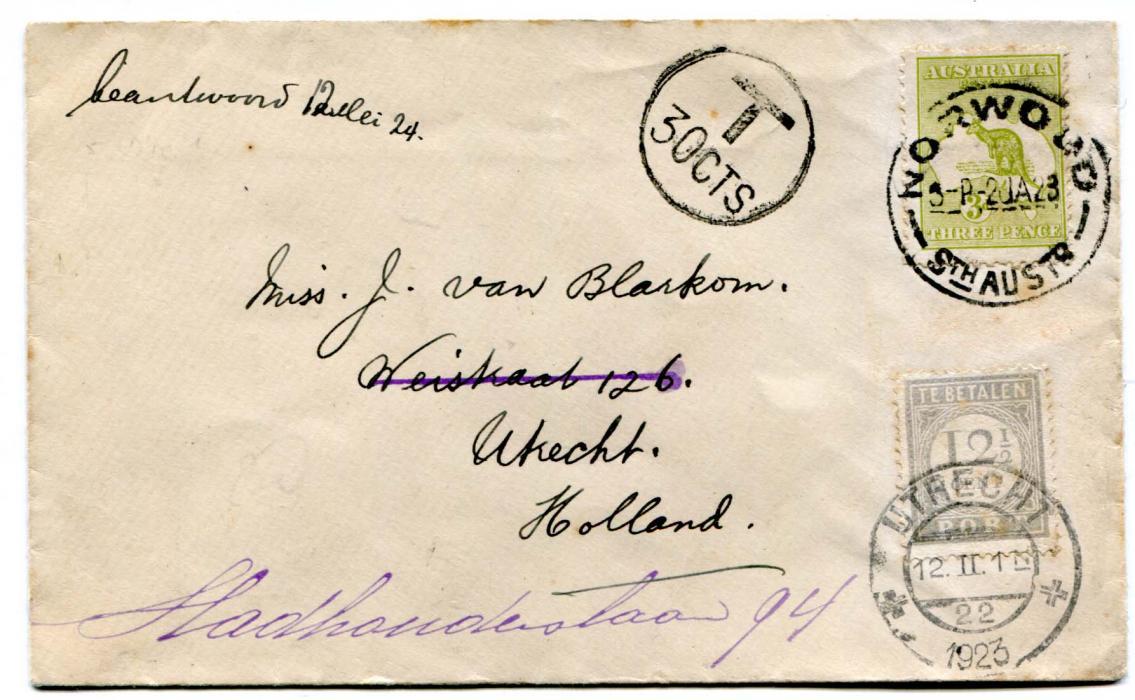 beantwoord 12 Mei 24.
T
30CTS
AUSTRALIA
3
THREE PENCE
NORWOOD
3-P-2JA23
STH AUSTR
Miss. J. van Blarkom.
126.
Utrecht.
Holland.
TE BETALEN
12½
PORT
UTRECHT
12.II.1
22
1923
Stadhouderslaan 94